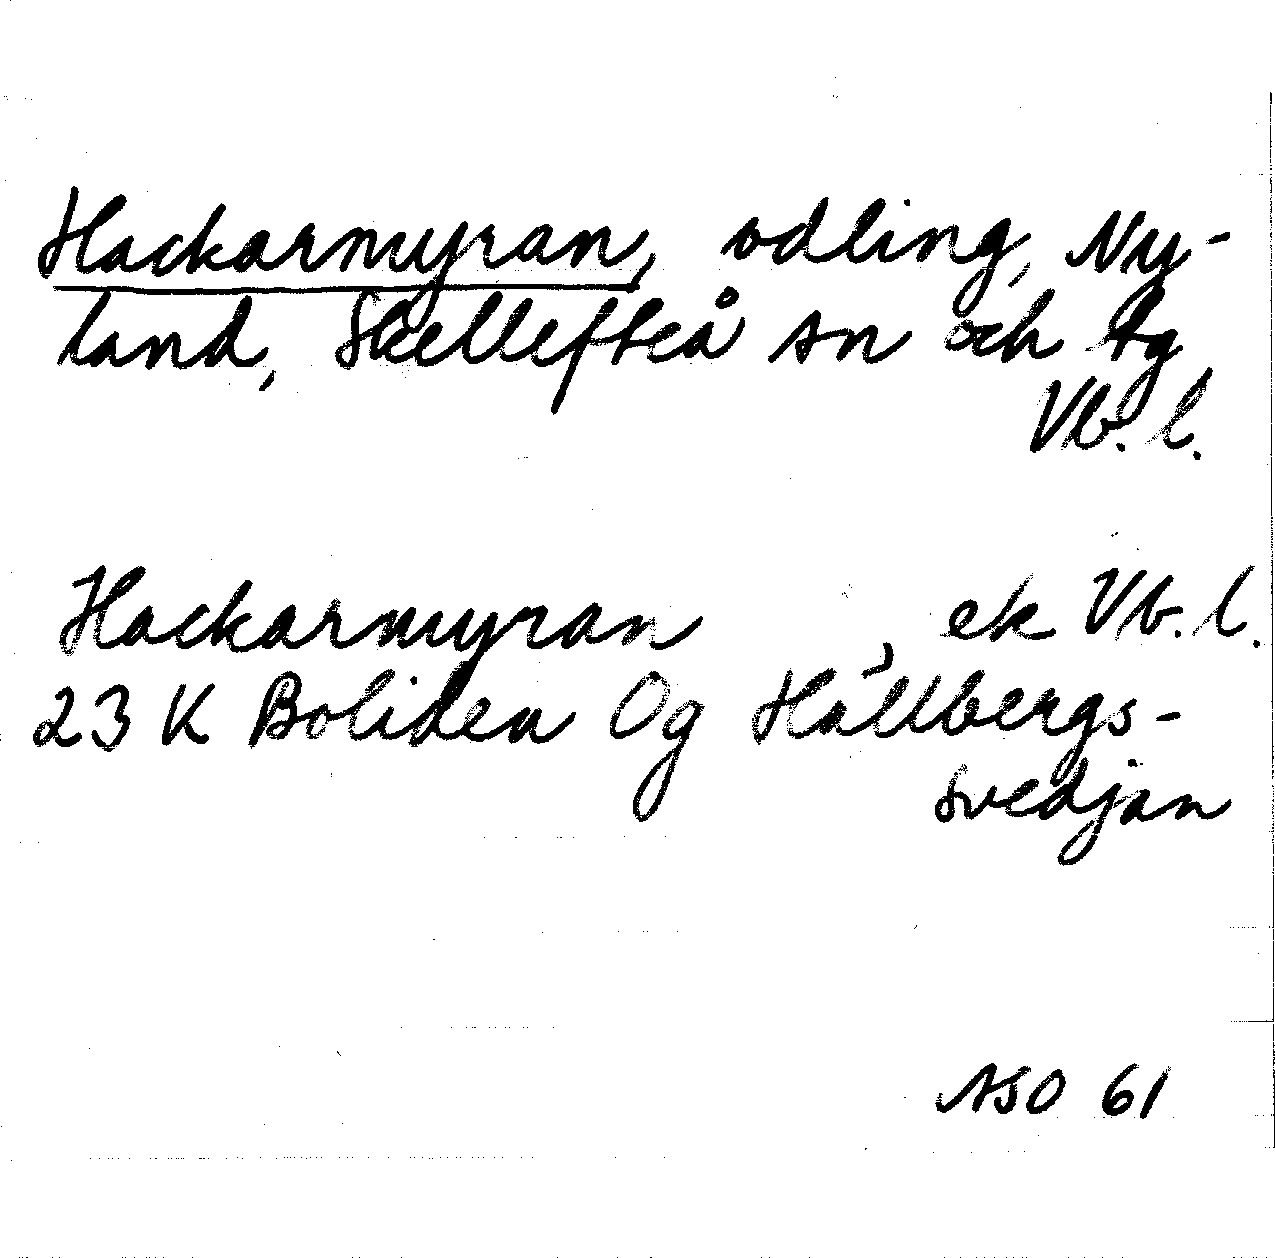 Hackarmyran, odling, Ny-
land, Skellefteå sn och tg
Vb. l.
Hackarmyran, ek Vb. l.
23 K Boliden Og Hällbergs-
svedjan
ASO 61